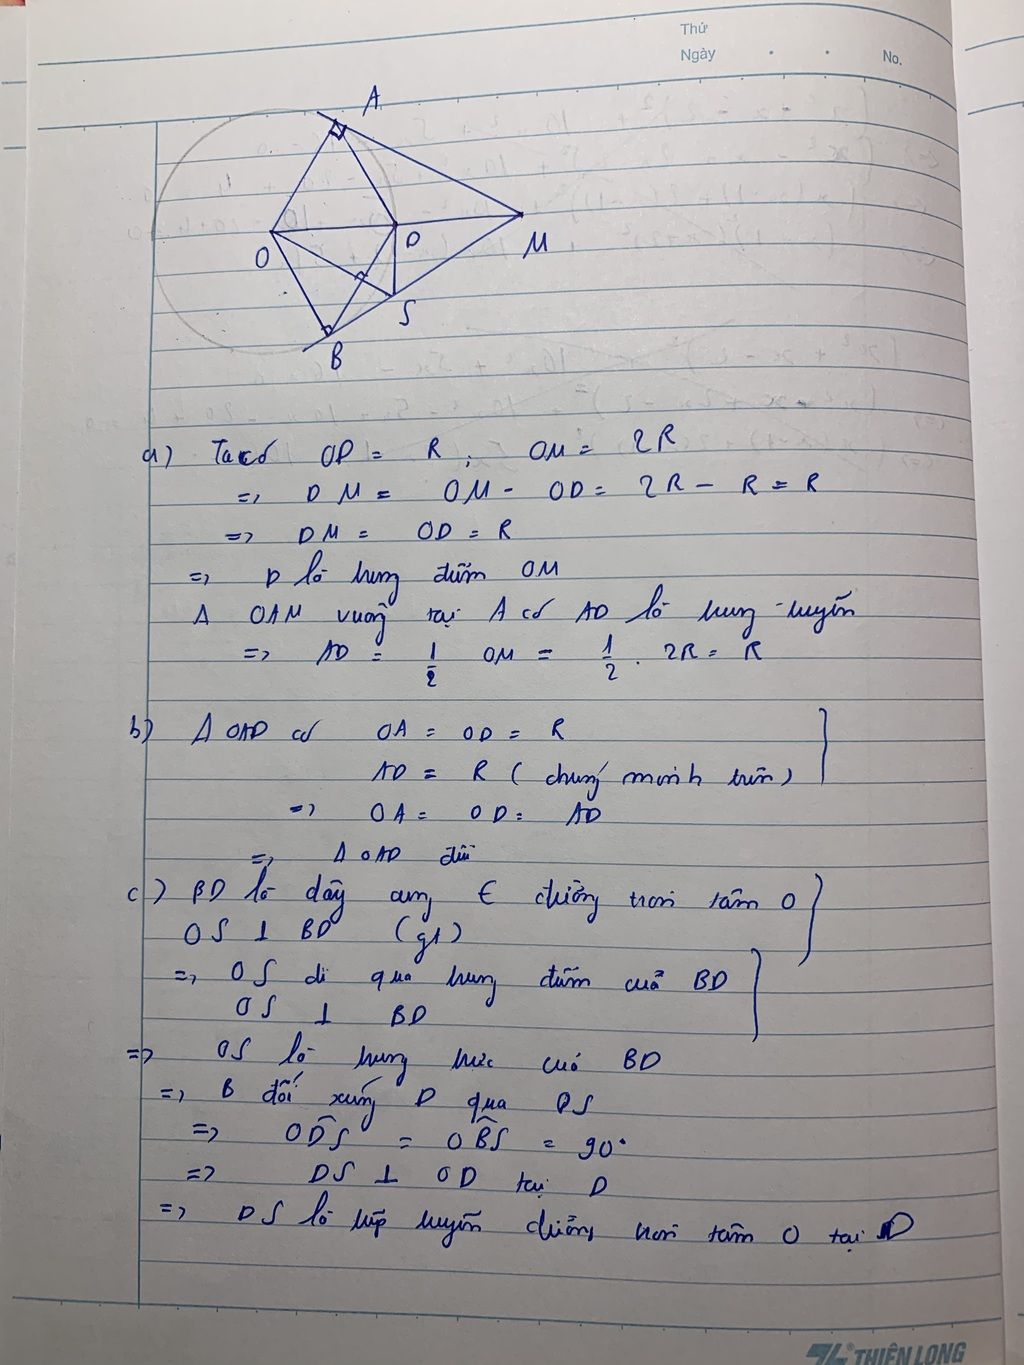 Thứ
Ngày . . No.
A
O
D
M
S
B
a) Ta có OD = R ; OM = 2R
=> DM = OM - OD = 2R - R = R
=> DM = OD = R
=> D là trung điểm OM
Δ OAM vuông tại A có AD là trung tuyến
=> AD = 1/2 OM = 1/2 . 2R = R
b) Δ OAD có OA = OD = R
AD = R ( chứng minh trên )
=> OA = OD = AD
=> Δ OAD đều
c) BD là dây cung ∈ đường tròn tâm O
OS ⊥ BD (gt)
=> OS đi qua trung điểm của BD
OS ⊥ BD
=> OS là trung trực của BD
=> B đối xứng D qua OS
=> ODS = OBS = 90°
=> DS ⊥ OD tại D
=> DS là tiếp tuyến đường tròn tâm O tại D
THIÊN LONG